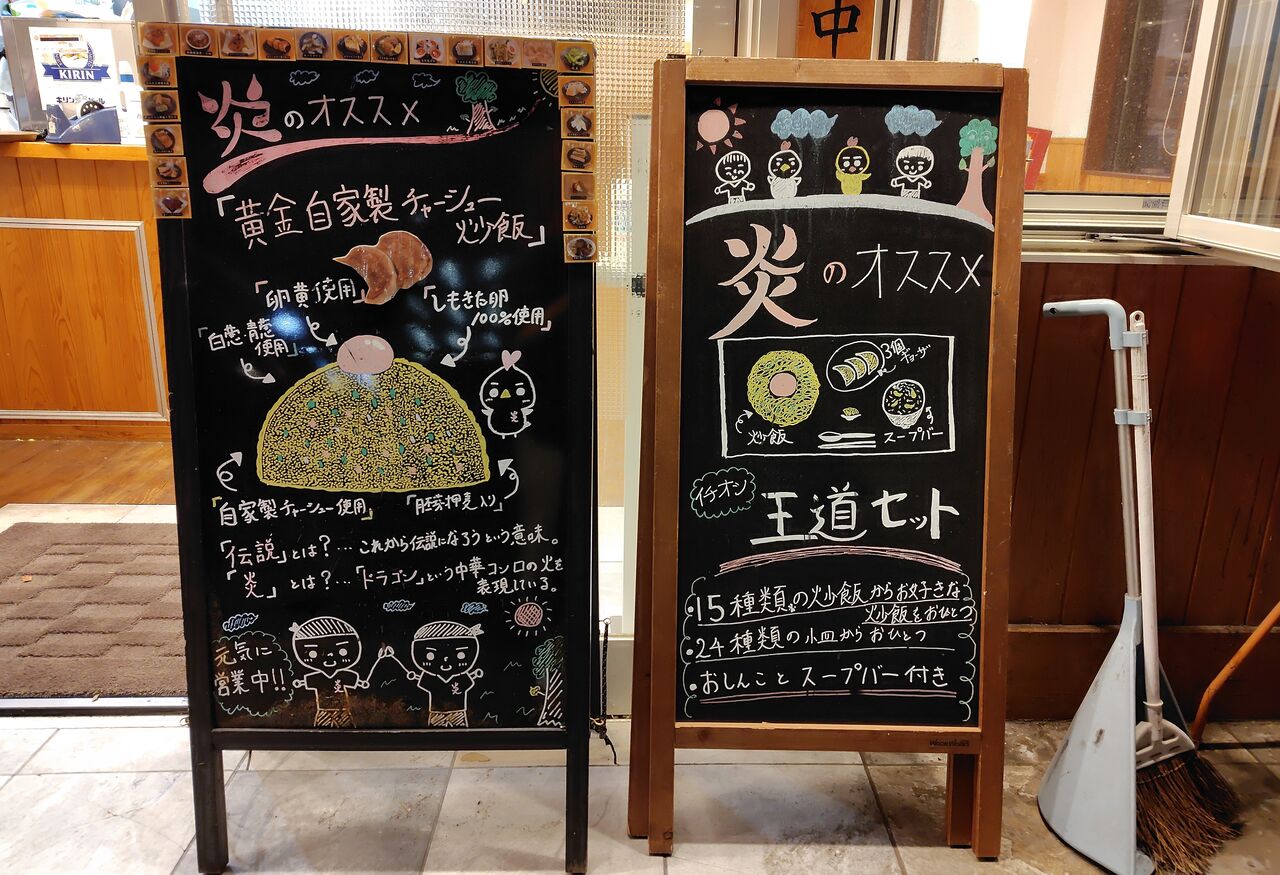 KIRIN
中
炎のオススメ
「黄金自家製チャーシュー
炒飯」
「卵黄使用」
「しもきた卵
100%使用」
「白葱・青葱
使用」
炎
「自家製チャーシュー使用」
「胚芽押麦入り」
「伝説」とは?…これから伝説になろうという意味。
「炎」とは?…「ドラゴン」という中華コンロの火を
表現している。
元気に
営業中!!
炎
炎
炎のオススメ
3個
ギョーザ
炒飯
スープバー
イチオシ
王道セット
・15種類の炒飯からお好きな
炒飯をおひとつ
・24種類の小皿からおひとつ
・おしんことスープバー付き